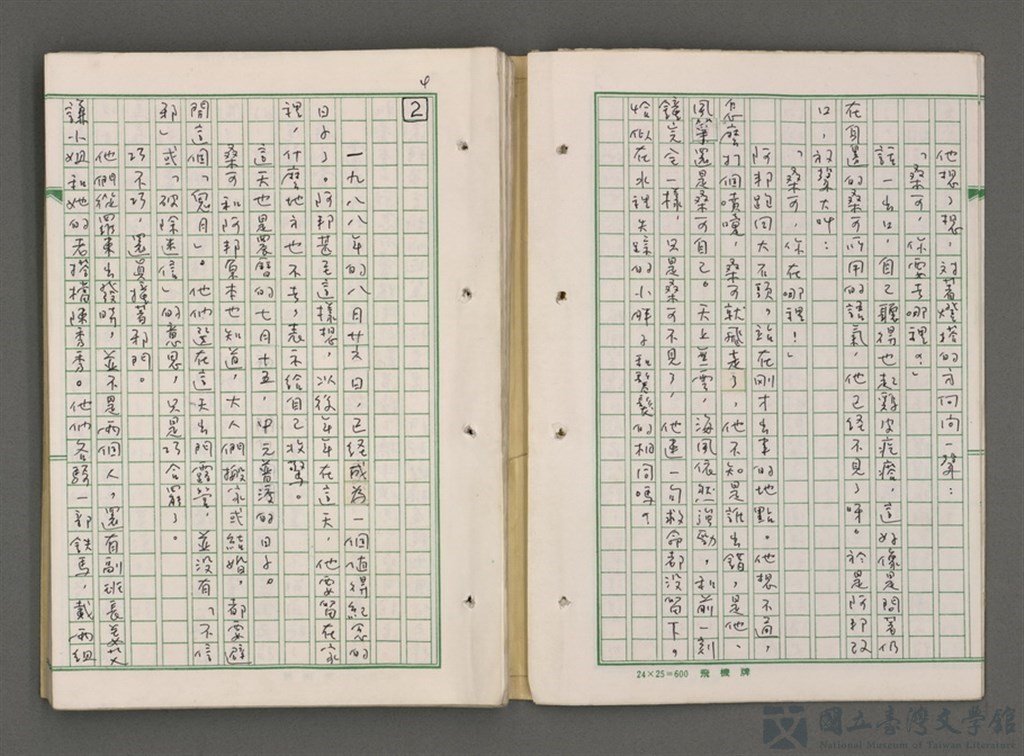 他想了想，對著燈塔的方向問一聲：
「桑可，你要去哪裡？」
話一出口，自己聽得也起雞皮疙瘩，這好像是問著仍
在身邊的桑可所用的語氣，他已經不見了呀。於是阿邦改
口，放聲大叫：
「桑可，你在哪裡！」
阿邦跑回大石頭，站在剛才出事的地點。他想不通，
怎麼打個噴嚏，桑可就飛走了，他不知是誰出錯，是他、
風箏還是桑可自己。天上無雲，海風依然強勁，和前一刻
鐘完全一樣，只是桑可不見了，他連一句救命都沒留下。
恰似在水裡失蹤的小胖子和鬈髮的相同嗎？
24×25=600 飛機牌
4
2
一九八八年的八月廿六日，已經成為一個值得紀念的
日子了。阿邦甚至這樣想，以後年年在這天，他要留在家
裡，什麼地方也不去，表示給自己收驚。
這天也是農曆的七月十五，中元普渡的日子。
桑可和阿邦原本也知道，大人們搬家或結婚，都要避
開這個「鬼月」。他們選在這天出門露營，並沒有「不信
邪」或「破除迷信」的意思，只是巧合罷了。
巧不巧，還真接著邪門。
他們從羅東出發時，並不是兩個人，還有副班長姜
謙小姐和她的老搭檔陳秀秀。他們各騎一部鐵馬，戴兩組
國立臺灣文學館
National Museum of Taiwan Literature